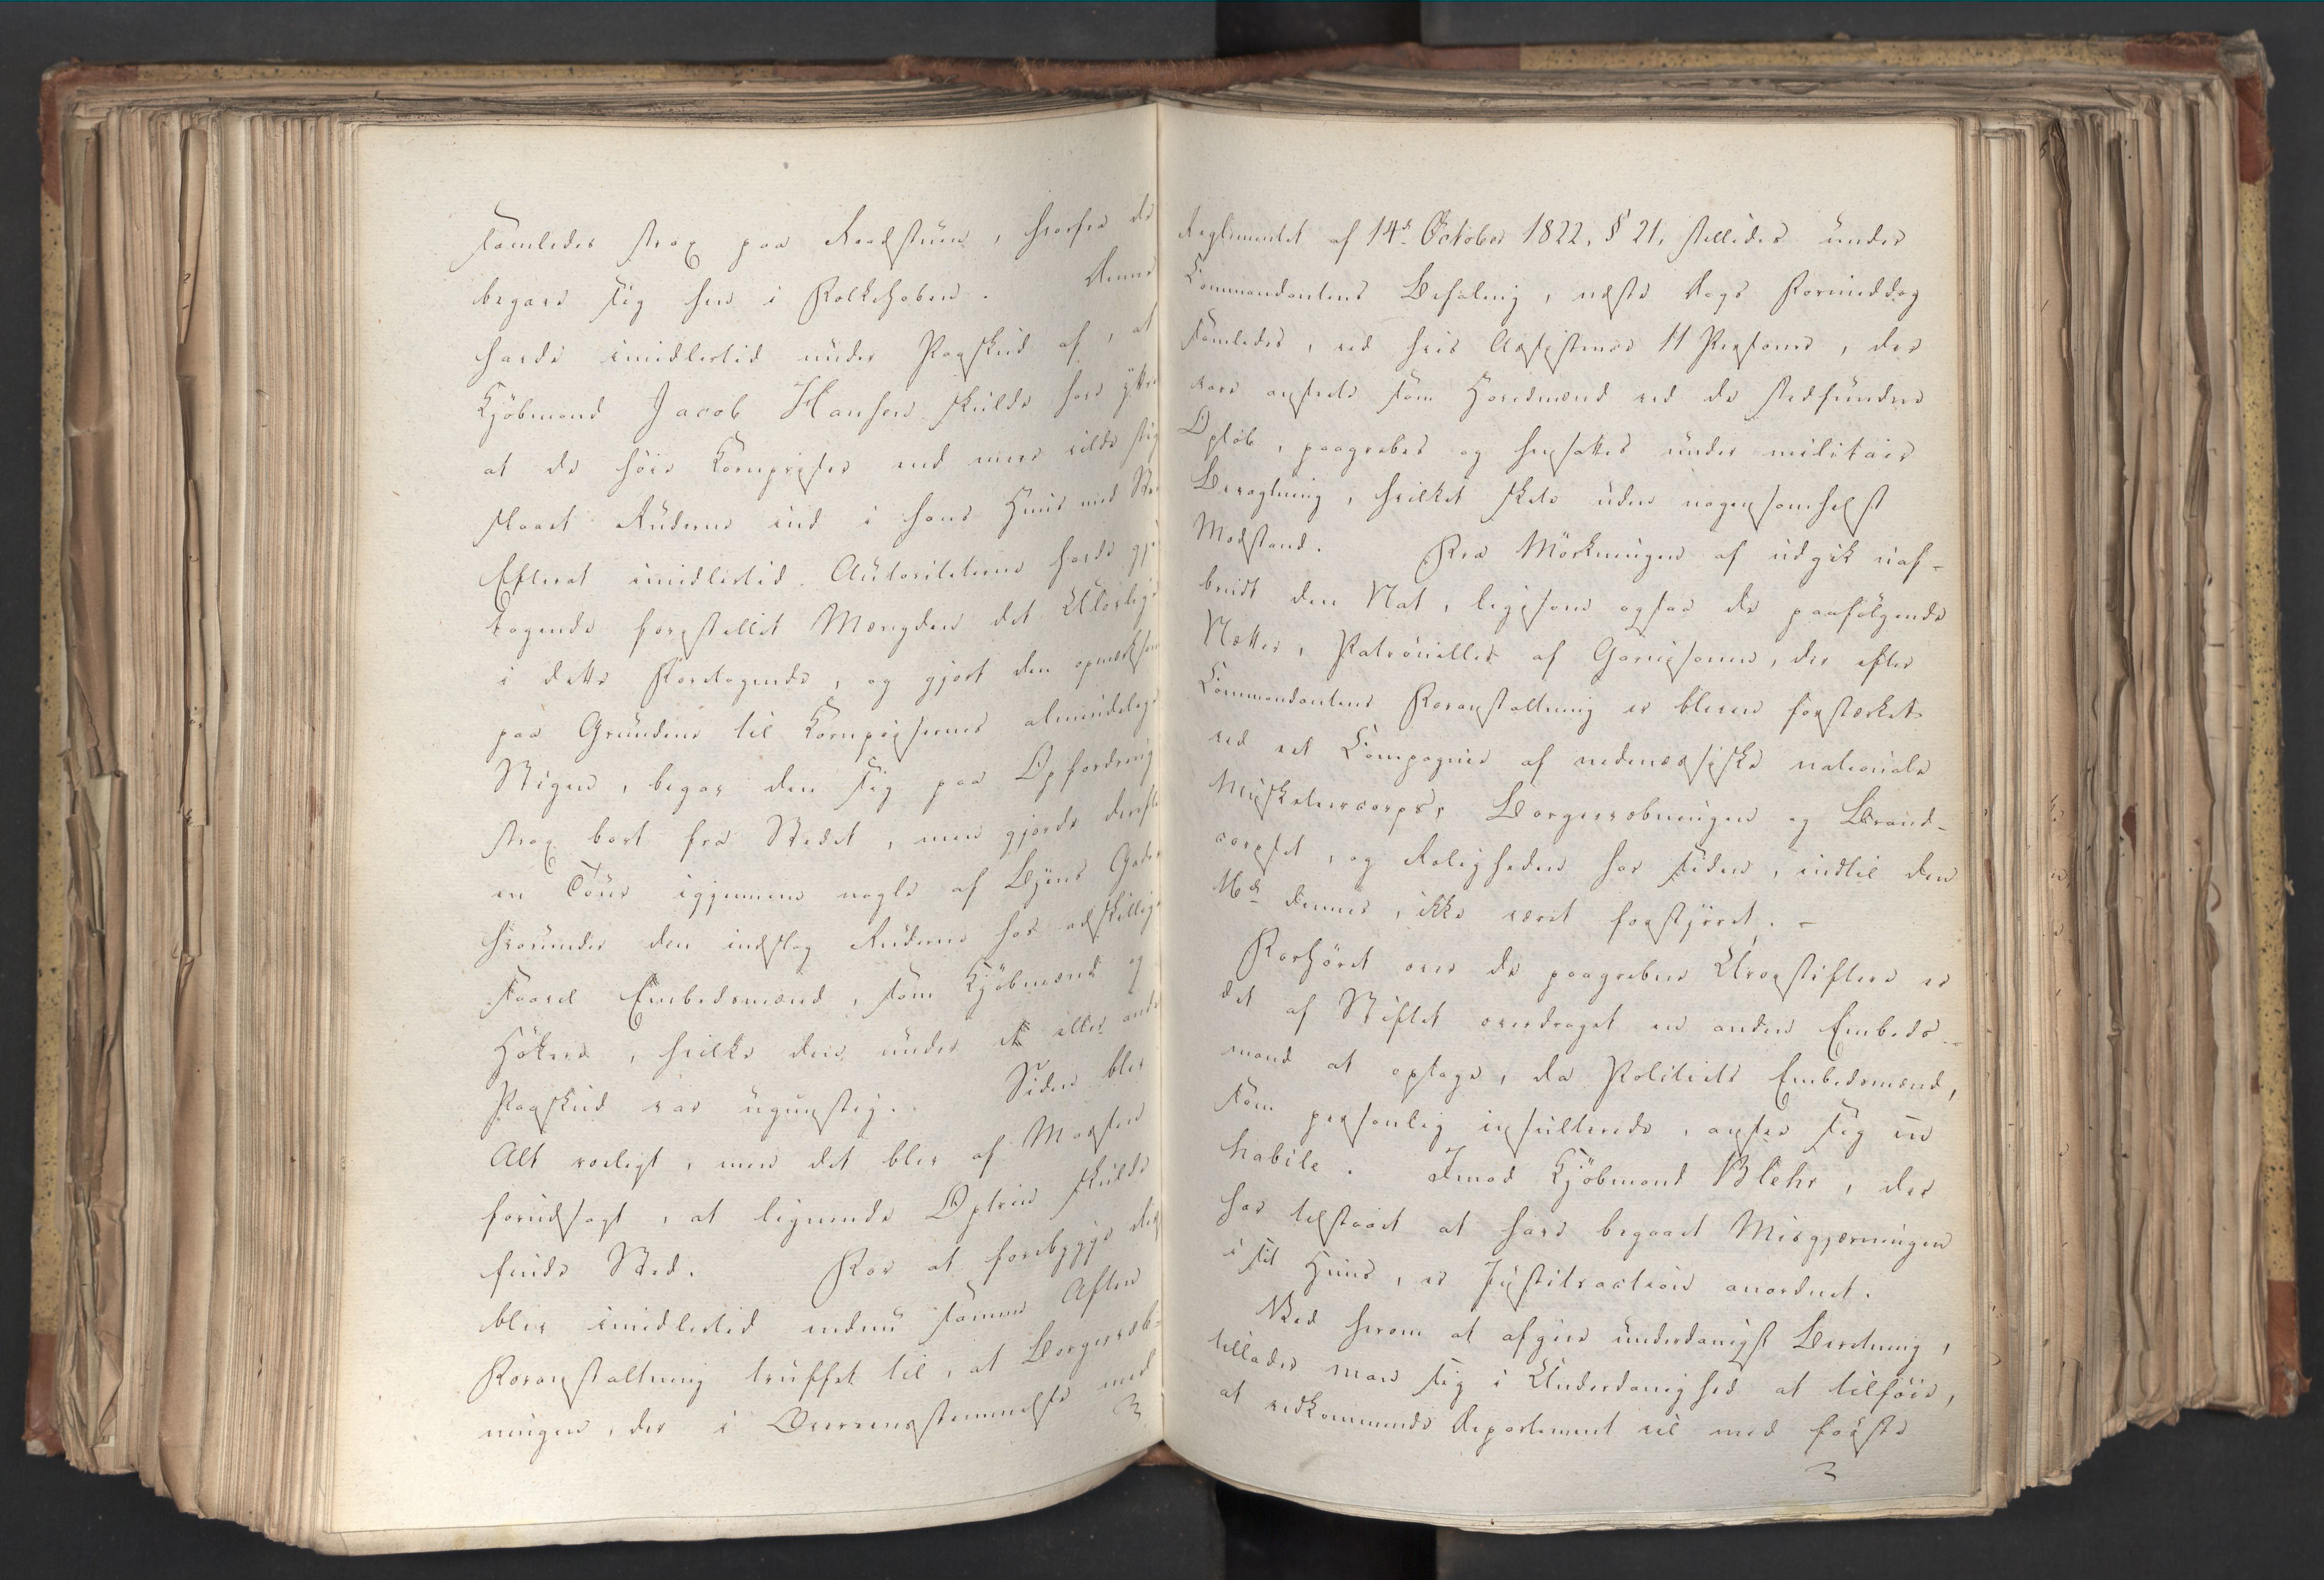 samledes strax paa Raadstuen, hvorfra de
begave sig hen i Folkehoben. Denne
havde imidlertid under Paaskud af, at
Kjöbmand Jacob Hansen skulde have yttre
at de høie Kornpriser end mere vilde stig
slaaet Ruderne ind i hans Huus med Ste
Efterat imidlertid Autoriteterne havde gje
tagende forestillet Mængden det Ulovlige
i dette Foretagende, og gjort den opmærksom
paa Grundene til Kornprisernes almindelige
Stigen, begav den sig paa Opfordring
strax bort fra Stedet, men gjorde dereft
en Tour igjennem nogle af Byens Gader
hvorunder den indslog Ruderne hos adskillige
saavel Embedsmænd, som Kjöbmænd og
Hökere, hvilke den under et eller andet
Paaskud var ugunstig. Siden blev
Alt roeligt, men det blev af Massen
forudsagt, at lignende Optrin skulde
finde Sted. For at forebygge dis
blev imidlertid endnu samme Aften
Foranstaltning truffet til, at Borgervæb-
ningen, der i Overeensstemmelse med
Reglementet af 14d. October 1822, § 21, stilledes under
Commandantens Befaling, næste Dags Formiddag
samledes, ved hvis Assistence 11 Personer, der
vare anseete som Hovedmænd ved de stedfundne
Opløb, paagrebes og hensattes under militair
Bevogtning, hvilket skete uden nogensomhelst
Modstand. Fra Mörkningen af udgik uaf-
brudt den Nat, ligesom ogsaa de paafölgende
Nætter, Patrouiller af Garnisonen, der efter
Commandantens Foranstaltning er bleven forstærket
ved et Compagnie af nedenæsiske nationale
Musketeercorps, Borgervæbningen og Brand-
corpset, og Roligheden har siden, indtil den
16d dennes, ikke været forstyrret. -
Forhöret over de paagrebne Urostiftere er
det af Stiftet overdraget en anden Embeds-
mand at optage, da Politiets Embedsmænd,
som personlig insulterede, ansee sig in
habile. Imod Kjöbmand Blehr, der
har tilstaaet at have begaaet Misgjerningen
i sit Huus, er Justitsaction anordnet.
Ved herom at afgive underdanigst Beretning,
tillader man sig i Underdanighed at tilföie,
at vedkommende Departement vil med förste